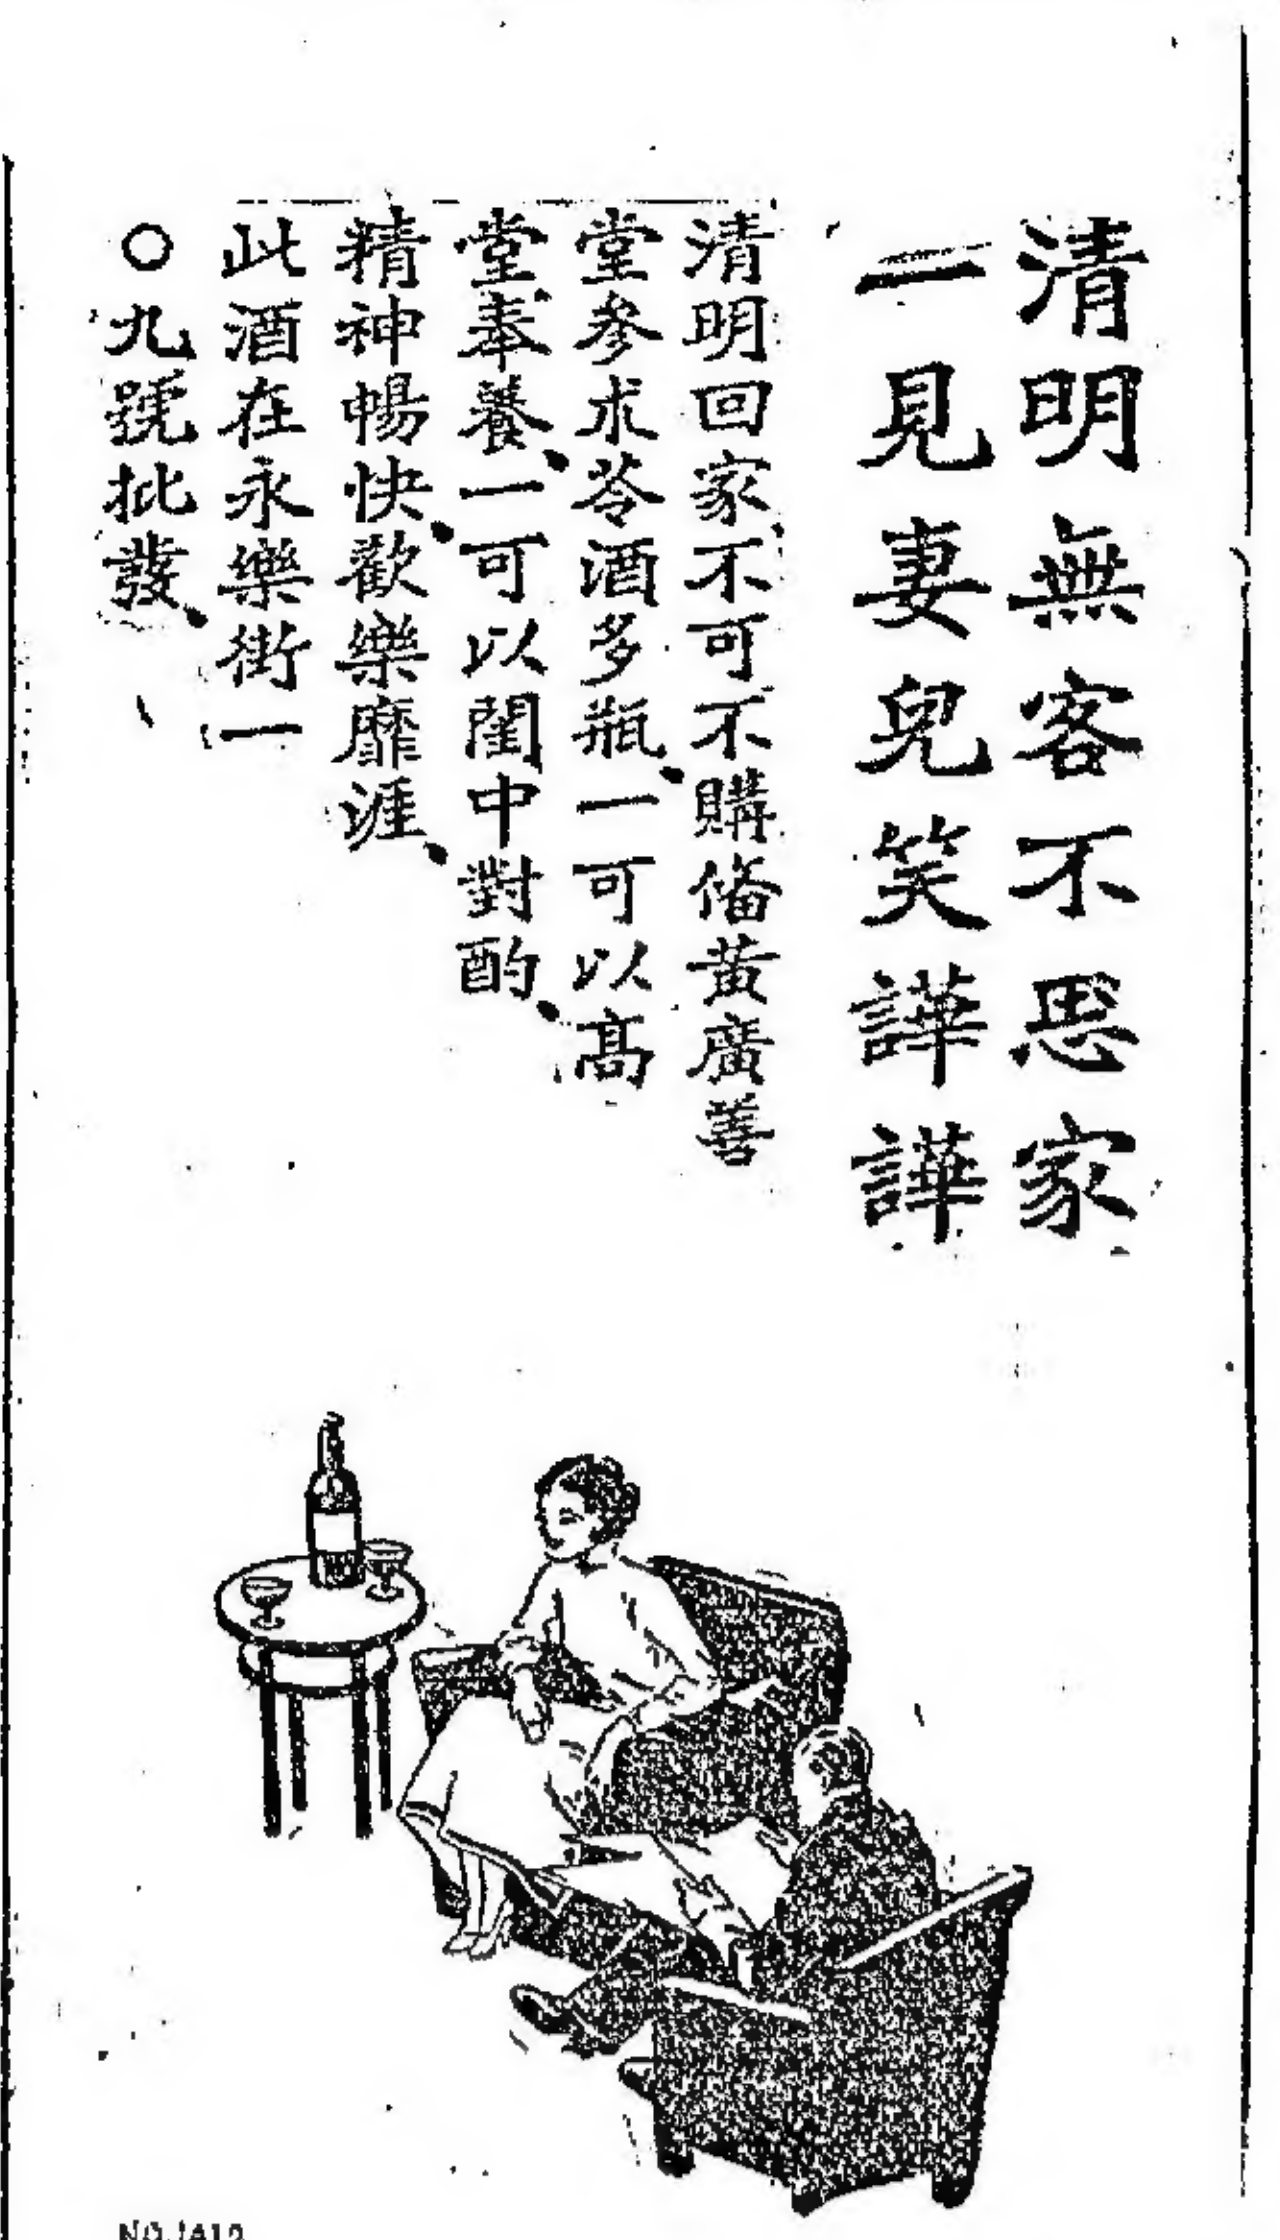 清明無客不思家
一見妻兒笑譁譁
清明回家、不可不購俻黃廣善
堂參朮苓酒多瓶、一可以高
堂奉養、一可以閨中對酌、
精神暢快、歡樂靡涯、
此酒在永樂街一
〇九號批發、